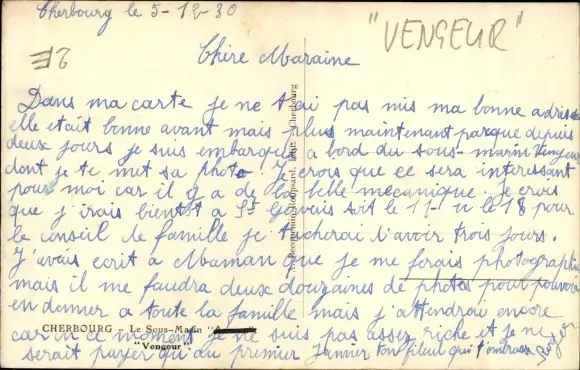 Cherbourg le 5-12-30
"VENGEUR"
Chère Maraine
Dans ma carte je ne t'ai pas mis ma bonne adresse
elle etait bonne avant mais plus maintenant parque depuis
deux jours je suis embarqué a bord du sous-marin Vengeur
dont je te met sa photo. Je crois que ce sera interessant
pour moi car il y a de la belle mécanique. je crois
que j'irais bientôt a St Gervais soit le 11 ou le 18 pour
le conseil de famille je tacherai d'avoir trois jours.
J'avais ecrit a Maman que je me ferais photographier
mais il me faudra deux douzaines de photos pour pouvoir
en donner a toute la famille mais j'attendrai encore
CHERBOURG - Le Sous-Marin
car en ce moment je ne suis pas assez riche et je ne
"Vengeur"
serait payer qu'au premier Janvier ton filleul qui t'embrasse Roger